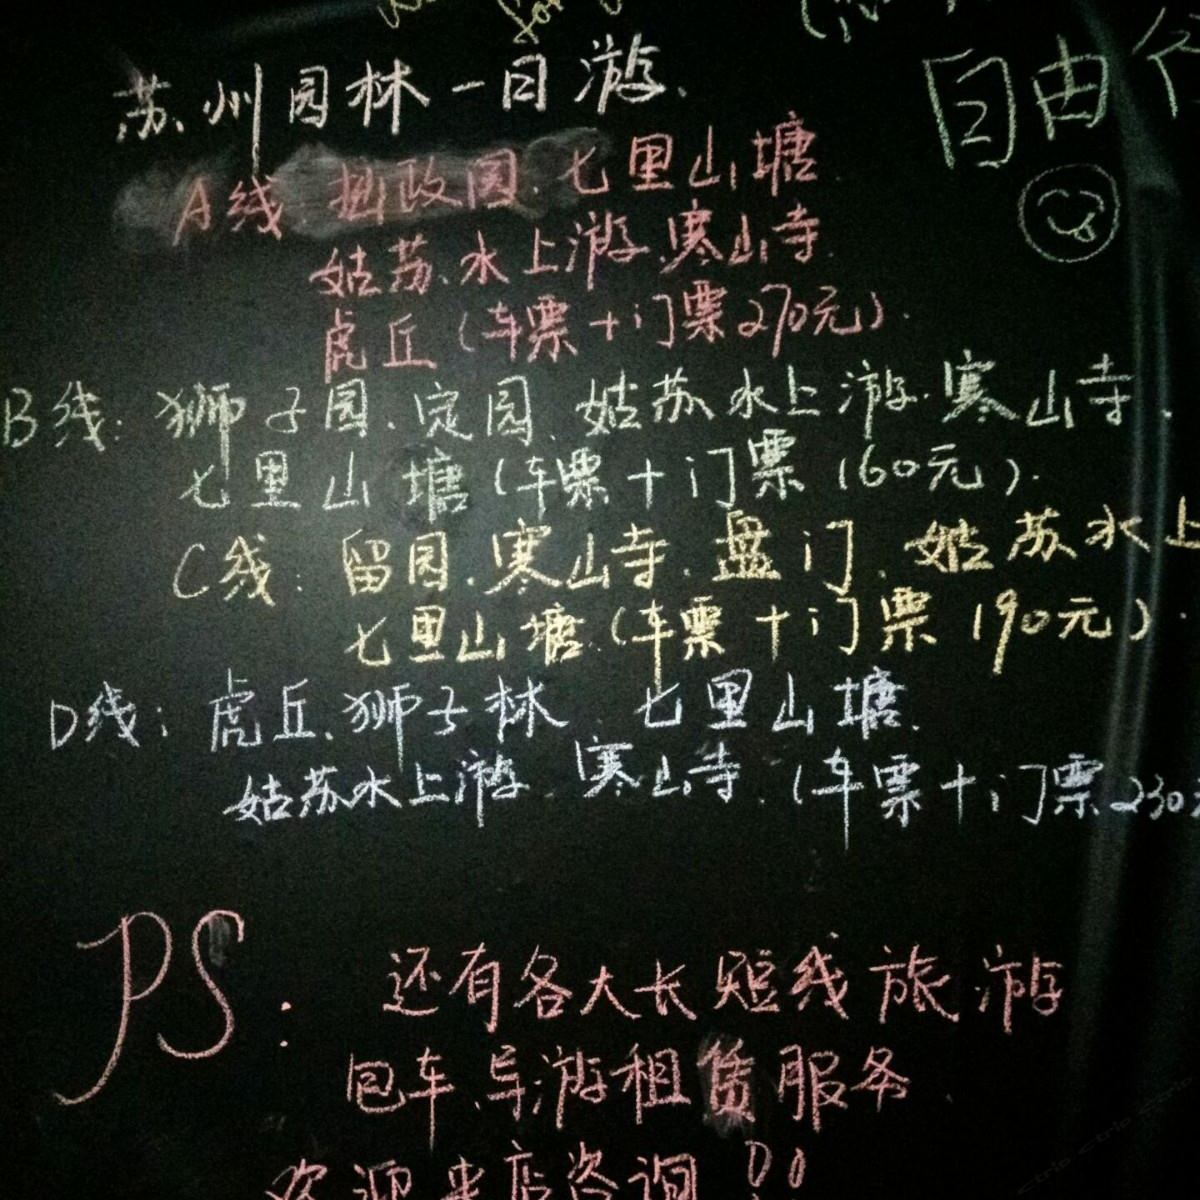 苏州园林一日游.
自由行
A线 拙政园.七里山塘.
姑苏.水上游.寒山寺.
虎丘(车票+门票270元).
B线:狮子园.定园.姑苏水上游.寒山寺.
七里山塘(车票+门票160元).
C线:留园.寒山寺.盘门.姑苏水上
七里山塘.(车票+门票190元).
D线:虎丘.狮子林.七里山塘.
姑苏水上游.寒山寺.(车票+门票230元
PS:还有各大长短线旅游
包车.导游租赁服务
欢迎来店咨询!!